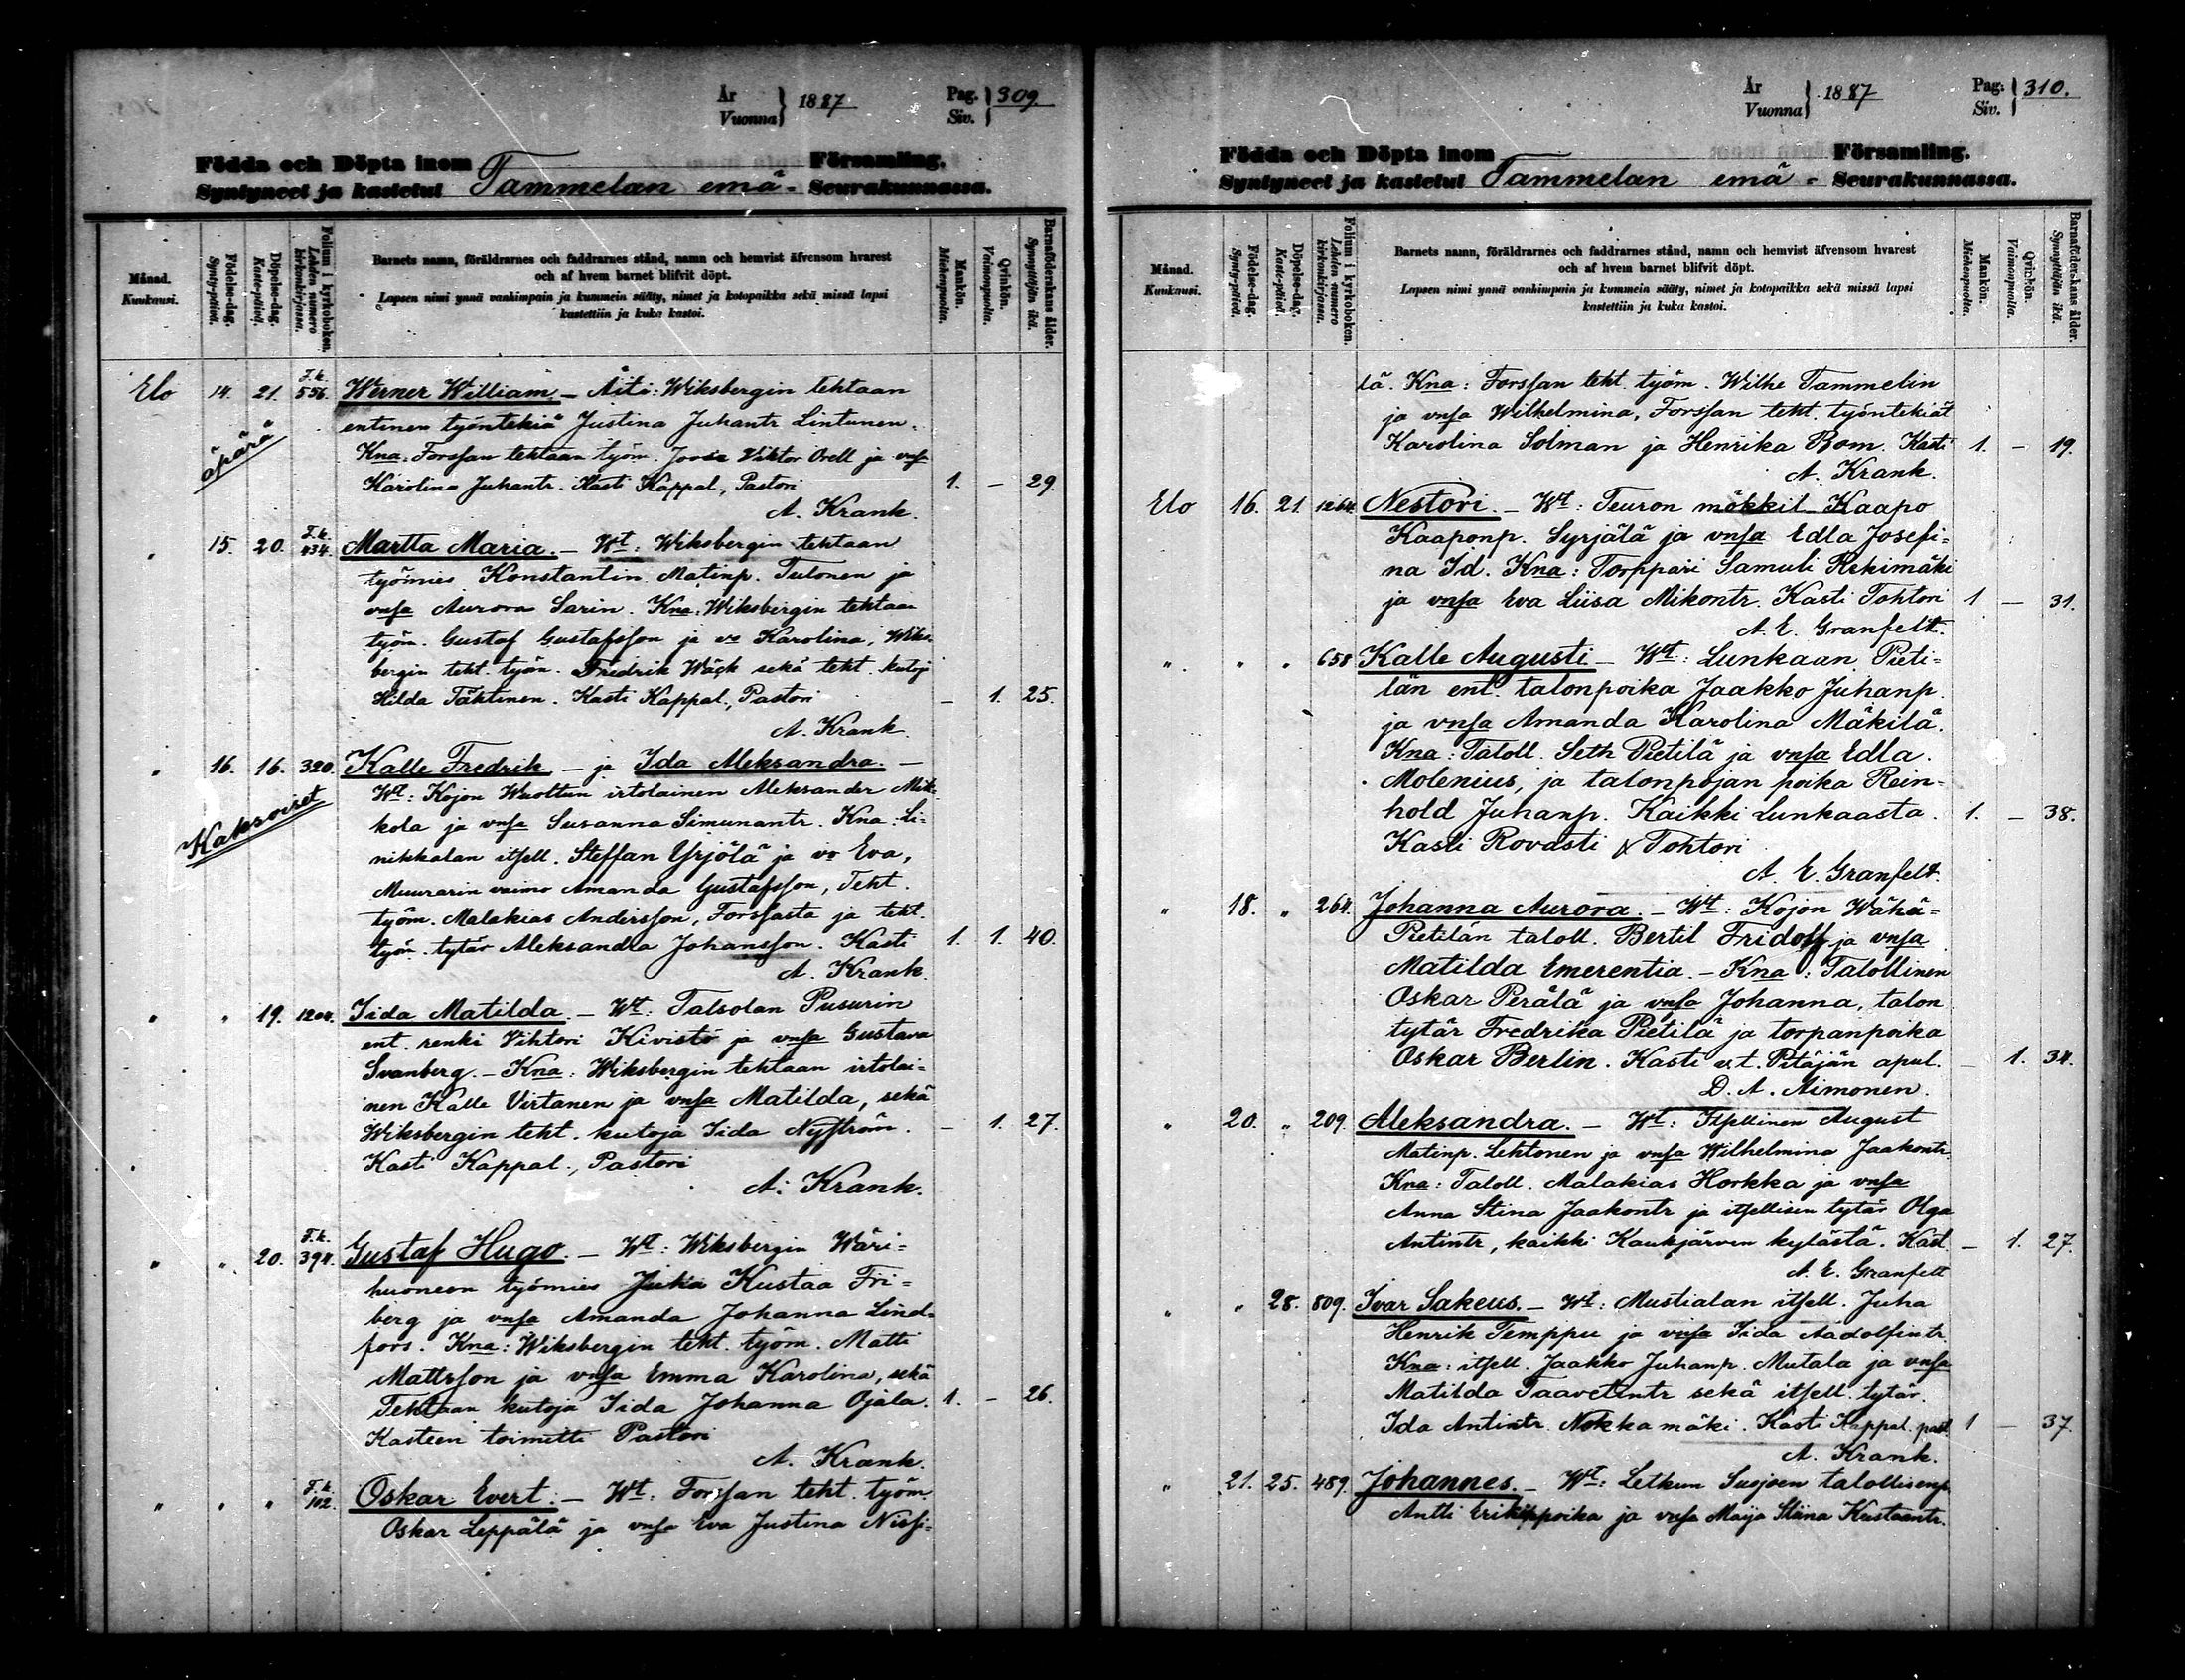 År
Vuonna } 1887
Pag.
Siv. } 309
Födda och Döpta inom Församling.
Syntyneet ja kastetut Tammelan emä- Seurakunnassa.
Månad.
Kuukausi.
Födelse-dag.
Synty-päivä.
Döpelse-dag.
Kaste-päivä.
Folium i kyrkoboken.
Lehden numero kirkonkirjassa.
Barnets namn, föräldrarnes och faddrarnes stånd, namn och hemvist äfvensom hvarest
och af hvem barnet blifvit döpt.
Lapsen nimi ynnä vanhimpain ja kummein sääty, nimet ja kotopaikka sekä missä lapsi
kastettiin ja kuka kastoi.
Mankön.
Miehenpuolta.
Qvinkön.
Vaimonpuolta.
Barnaföderskans ålder.
Synnyttäjän ikä.
Elo 14. 21. T.k. 556. Werner William. - Äiti: Wiksbergin tehtaan
äpärä
entinen työntekiä Justina Juhantr Lintunen.
Kna: Forssan tehtaan työm. Viktor Orell ja vnsa
Karolina Juhantr. Kasti Kappal., Pastori 1. - 29.
A. Krank.
" 15. 20. T.k. 434. Martta Maria. - Wt: Wiksbergin tehtaan
työmies Konstantin Matinp. Tulonen ja
vnsa Aurora Sarin. Kna: Wiksbergin tehtaan
työm. Gustaf Gustafsson ja vo Karolina, Wiks-
bergin teht. työm. Fredrik Wäck sekä teht. kutoj
Hilda Täktinen. Kasti Kappal., Pastori - 1. 25.
A. Krank.
" 16. 16. 320. Kalle Fredrik - ja Ida Aleksandra. -
Kaksoiset
Wt: Kojon Wuottun irtolainen Aleksander Mik-
kola ja vnsa Susanna Simunantr. Kna: Li-
nikkalan itsell. Steffan Yrjölä ja vo Eva,
Muurarin vaimo Amanda Gustafsson, Teht.
työm. Malakias Andersson, Forssasta ja teht.
työm. tytär Aleksandra Johansson. Kasti 1. 1. 40.
A. Krank.
" " 19. 1204. Iida Matilda. - Wt: Talsolan Pusurin
ent. renki Vihtori Kivistö ja vnsa Gustava
Svanberg. - Kna: Wiksbergin tehtaan irtolai-
nen Kalle Virtanen ja vnsa Matilda, sekä
Wiksbergin teht. kutoja Iida Nyström. - 1. 27.
Kasti Kappal., Pastori
A. Krank.
" " 20. T.k. 394. Gustaf Hugo. - Wt: Wiksbergin Wäri-
huoneen työmies Juka Kustaa Fri-
berg ja vnsa Amanda Johanna Lind-
fors. Kna: Wiksbergin teht. työm. Matti
Mattsson ja vnsa Emma Karolina, sekä
Tehtaan kutoja Iida Johanna Ojala. 1. - 26.
Kasteen toimitti Pastori
A. Krank.
" " " T.k. 102. Oskar Evert. - Wt: Forssan teht. työm.
Oskar Leppälä ja vnsa Eva Justina Nissi-
År
Vuonna } 1887
Pag.
Siv. } 310.
Födda och Döpta inom Församling.
Syntyneet ja kastetut Tammelan emä- Seurakunnassa.
Månad.
Kuukausi.
Födelse-dag.
Synty-päivä.
Döpelse-dag.
Kaste-päivä.
Folium i kyrkoboken.
Lehden numero kirkonkirjassa.
Barnets namn, föräldrarnes och faddrarnes stånd, namn och hemvist äfvensom hvarest
och af hvem barnet blifvit döpt.
Lapsen nimi ynnä vanhimpain ja kummein sääty, nimet ja kotopaikka sekä missä lapsi
kastettiin ja kuka kastoi.
Mankön.
Miehenpuolta.
Qvinkön.
Vaimonpuolta.
Barnaföderskans ålder.
Synnyttäjän ikä.
lä. Kna: Forssan teht. työm. Wilhe Tammelin
ja vnsa Wilhelmina, Forssan teht. työntekiät
Karolina Solman ja Henrika Bom. Kasti 1. - 19.
A. Krank.
Elo 16. 21. 1264. Nestori. - Wt: Teuron mökkil Kaapo
Kaaponp. Syrjälä ja vnsa Edla Josefi-
na Id. Kna: Torppari Samuli Rekimäki
ja vnsa Eva Liisa Mikontr. Kasti Tohtori 1 - 31.
A. E. Granfelt.
" " " 658 Kalle Augusti - Wt: Lunkaan Pieti-
län ent. talonpoika Jaakko Juhanp.
ja vnsa Amanda Karolina Mäkilä.
Kna: Taloll. Seth Pietilä ja vnsa Edla
Molenius, ja talonpojan poika Rein-
hold Juhanp. Kaikki Lunkaasta. 1. - 38.
Kasti Rovasti & Tohtori
A. E. Granfelt.
" 18. " 264. Johanna Aurora. - Wt: Kojon Wähä-
Pietilän taloll. Bertil Fridolf ja vnsa
Matilda Emerentia. - Kna: Talollinen
Oskar Perälä ja vnsa Johanna, talon
tytär Fredrika Pietilä ja torpanpoika
Oskar Berlin. Kasti v.t. Pitäjän apul. - 1. 34.
D. A. Aimonen.
" 20. " 209. Aleksandra. - Wt: Itsellinen August
Matinp. Lehtonen ja vnsa Wilhelmina Jaakontr.
Kna: Taloll. Malakias Horkka ja vnsa
Anna Stina Jaakontr ja itsellisen tytär Olga
Antintr, kaikki Kaukjärven kylästä. Kast. - 1. 27.
A. E. Granfelt
" " 28. 809. Ivar Sakeus. - Wt: Mustialan itsell. Juha
Henrik Temppu ja vnsa Iida Aadolfintr.
Kna: itsell. Jaakko Juhanp. Mutala ja vnsa
Matilda Taavetintr sekä itsell. tytär
Ida Antintr. Nokkamäki. Kasti Kappal. past. 1 - 37.
A. Krank.
" 21. 25. 489. Johannes. - Wt: Letkun Suojoen talollisenp.
Antti Erikinpoika ja vnsa Maija Stiina Kustaantr.